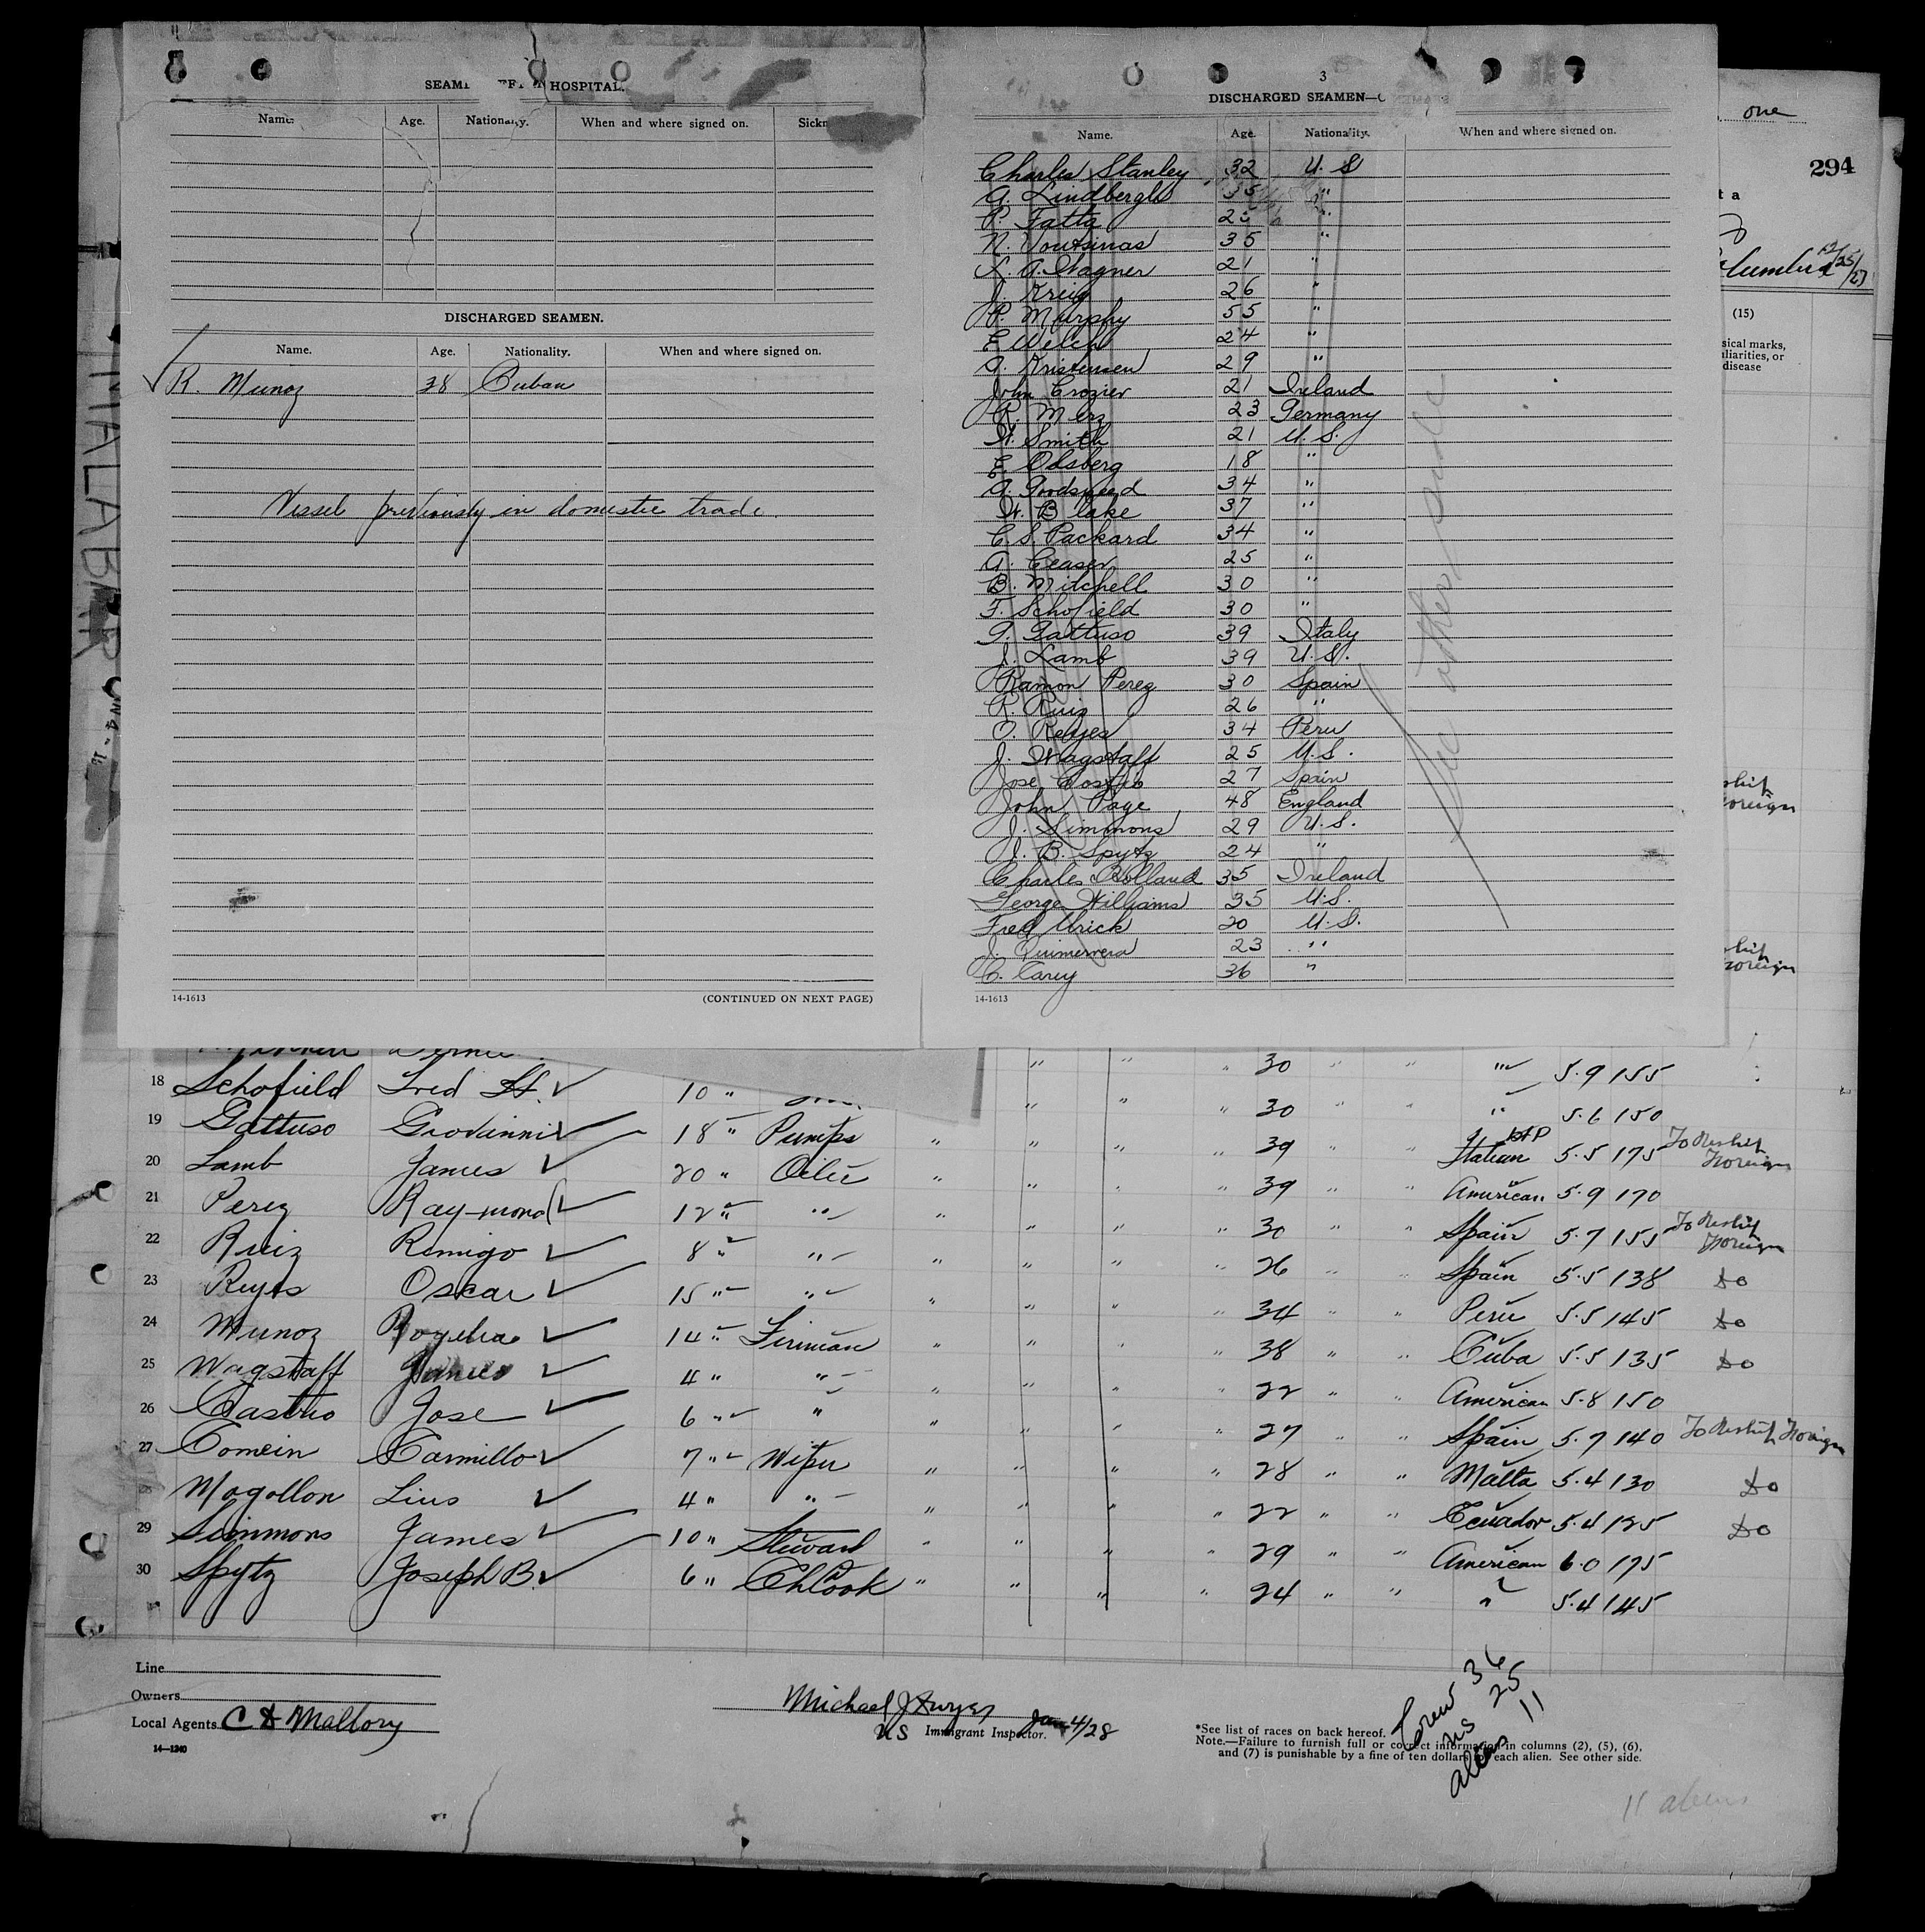 SEAMEN HOSPITAL.
Name. Age. Nationality. When and where signed on.
DISCHARGED SEAMEN.
Name. Age. Nationality. When and where signed on.
R. Munoz 38 Cuban
Vessel previously in domestic trade.
14-1613 (CONTINUED ON NEXT PAGE)
3
DISCHARGED SEAMEN—
Name. Age. Nationality. When and where signed on.
Charles Stanley 32 U. S
A. Lindbergh 35 "
P. Fatta "
N. Voutsinas 35 "
A. Wagner 21 "
J. Kreig 26 "
P. Murphy 55 "
E Welch 24 "
A. Kristensen 29 "
John Crozier 21 Ireland
R. Merz 23 Germany
H. Smith 21 U. S.
E. Odsberg 18 "
A. Goodspeed 34 "
H. B lake 37 "
C. S. Packard 34 "
A. Ceaser 25 "
B. Mitchell 30 "
F. Schofield 30 "
G. Gattuso 39 Italy
J. Lamb 39 U. S.
Ramon Perez 30 Spain
R. Ruiz 26 "
O. Reyes 34 Peru
J. Wagstaff 25 U. S.
Jose 27 Spain
John Page 48 England
J. Simmons 29 U. S.
J. B. Spytz 24 "
Charles Bolland 35 Ireland
George Williams 35 U. S.
Fred Urick 20 U. S.
J. 23 "
C. Carey 36 "
14-1613
See other side
one
294
t a
12/25/27
(15)
sical marks,
uliarities, or
disease
ship
foreign
ship
foreign
MALABAR
30 " " " 5.9 155
18 Schofield Fred H. 10 " " " " 30 " " " 5.6 150
19 Gattuso Giovanni 18 " Pumps " " " " 39 " " Italian 5.5 175 To Reship Foreign
20 Lamb James 20 " Oiler " " " " 39 " " American 5.9 170
21 Perez Raymond 12 " " " " " " 30 " " Spain 5.7 155 To Reship Foreign
22 Ruiz Remigo 8 " " " " " " 26 " " Spain 5.5 138 do
23 Reyes Oscar 15 " " " " " " 34 " " Peru 5.5 145 do
24 Munoz Rogelio 14 " Fireman " " " " 38 " " Cuba 5.5 135 do
25 Wagstaff James 4 " " " " " " 22 " " American 5.8 150
26 Castro Jose 6 " " " " " " 27 " " Spain 5.7 140 To Reship Foreign
27 Comein Carmillo 7 " Wiper " " " " 28 " " Malta 5.4 130 do
28 Mogollon Lius 4 " " " " " " 22 " " Ecuador 5.4 125 do
29 Simmons James 10 " Steward " " " " 29 " " American 6.0 175
30 Spytz Joseph B. 6 " Ch Cook " " " " 24 " " " 5.4 145
Line
Owners
Local Agents C D Mallory
14—1240
Michael J Dwyer
US Immigrant Inspector. Jan 4/28
*See list of races on back hereof.
Note.—Failure to furnish full or correct information in columns (2), (5), (6),
and (7) is punishable by a fine of ten dollars for each alien. See other side.
Crew 36
US 25
aliens 11
11 aliens